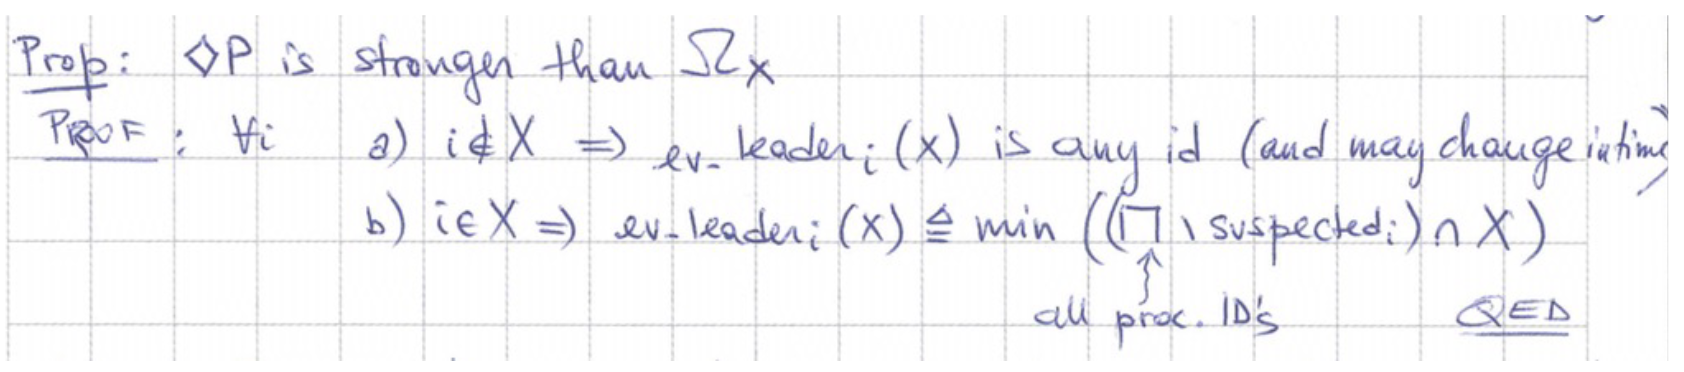 Prop: ◇P is stronger than Ω_X
PROOF: ∀i a) i∉X ⇒ ev-leader_i(X) is any id (and may change in time)
b) i∈X ⇒ ev-leader_i(X) ≜ min ((Π \ suspected_i) ∩ X)
↑
all proc. ID's QED